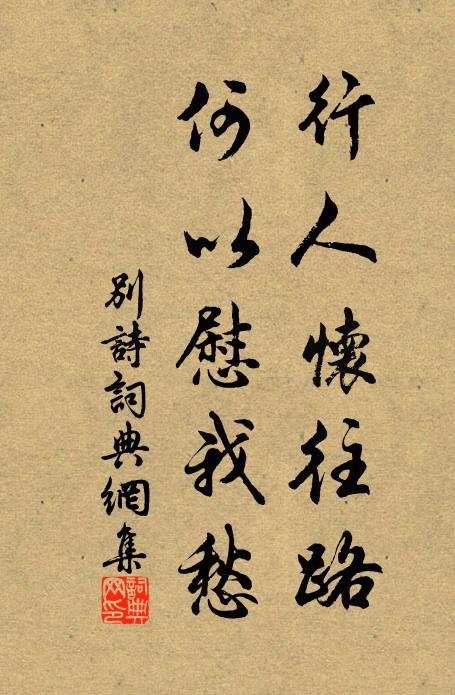 行人懷往路
何以慰我愁
別詩詞典網集
詞典
网印